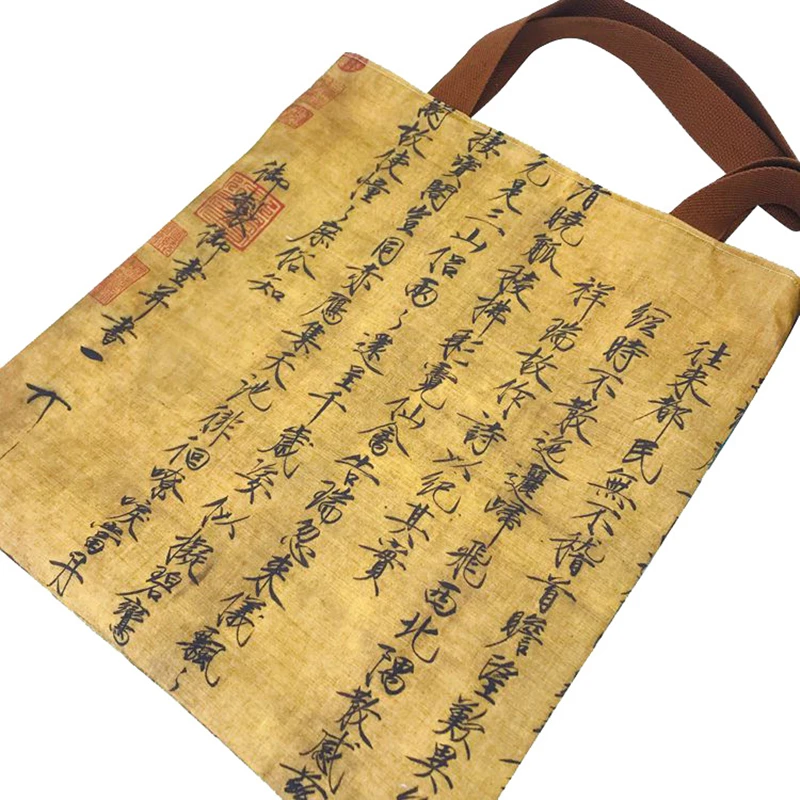 往來都民無不稽首瞻望歎異
經時不散迤邐歸飛西北隅散感
祥瑞故作詩以紀其實
曉觚稜拂彩霓仙禽告瑞忽來儀飄々
元是三山侶兩々還呈千歲姿似擬碧鸞
棲寶閣豈同赤鴈集天池徘徊嘹唳當丹
闕故使憧々庶俗知
御製御畫并書